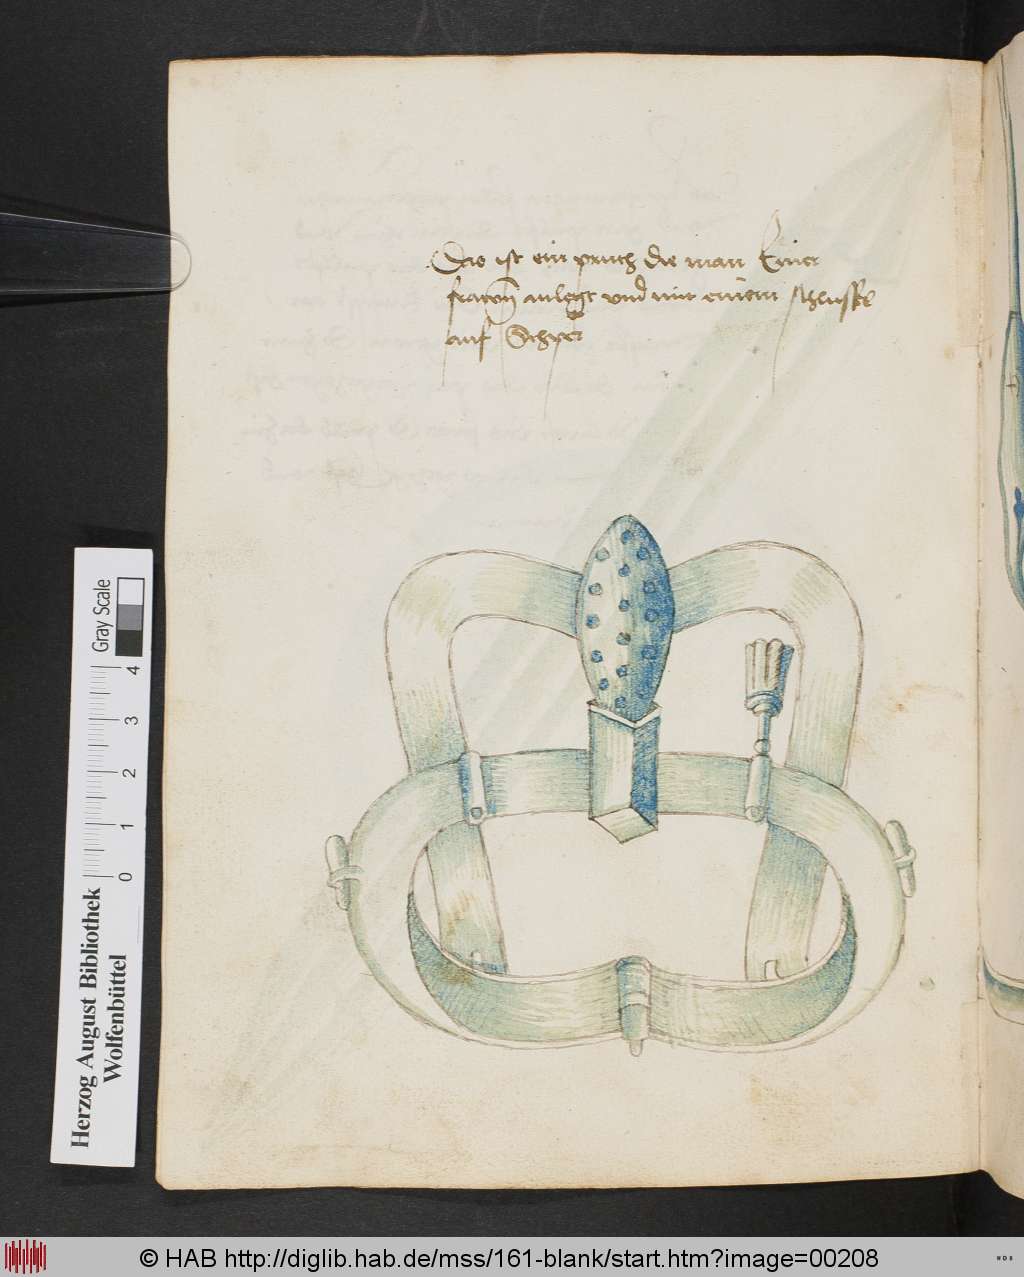 Das ist ein pruch die man Einer
frawen anlegt vnd mit einem schlussel
auf Schpert
Gray Scale
4
3
2
1
0
Herzog August Bibliothek
Wolfenbüttel
© HAB http://diglib.hab.de/mss/161-blank/start.htm?image=00208